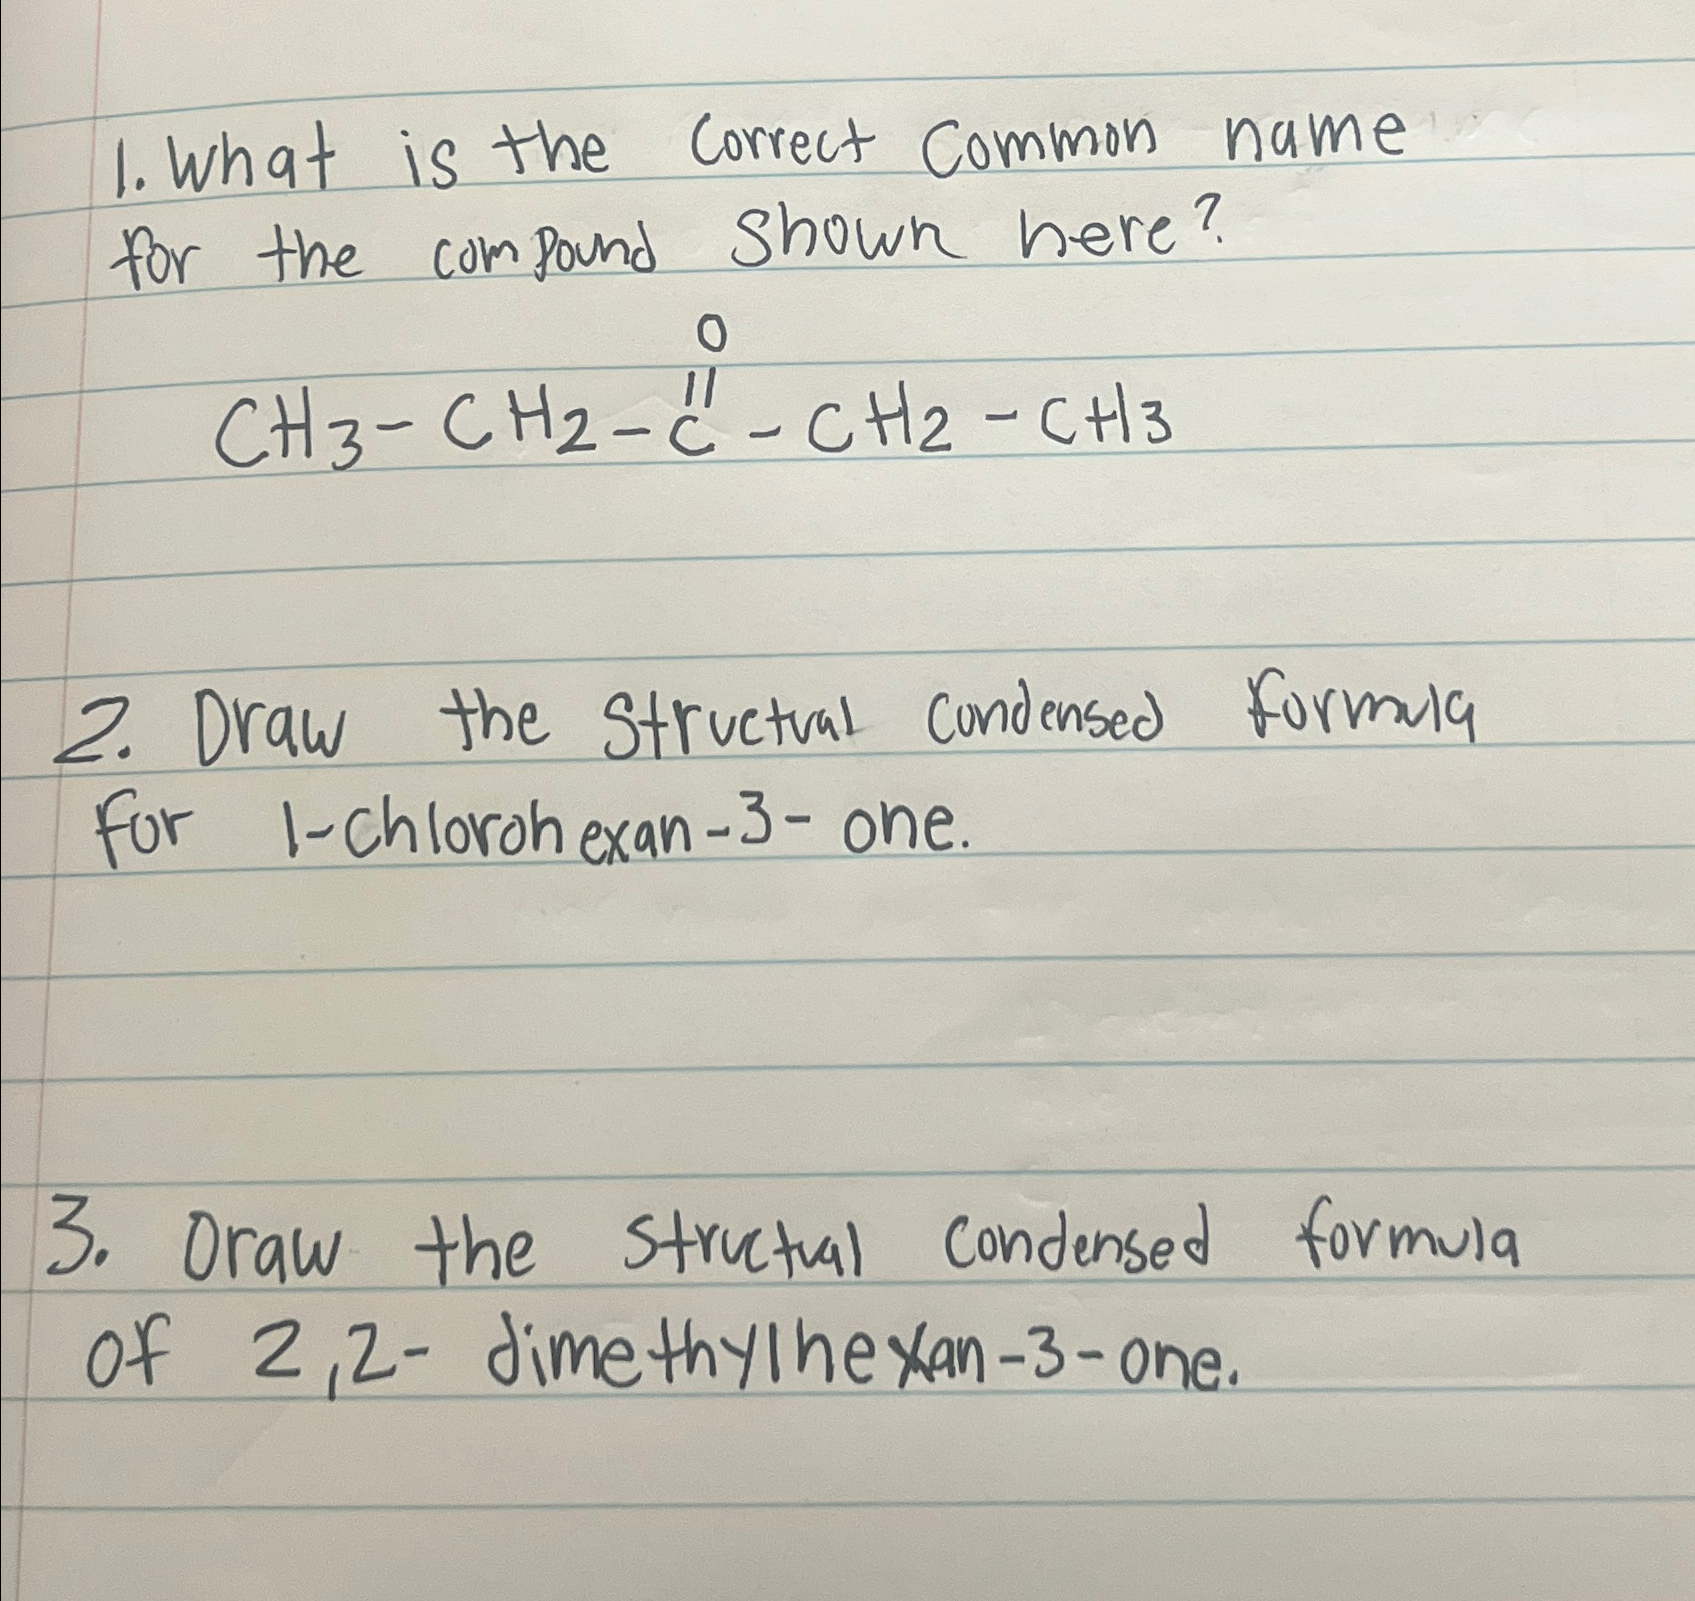 1. What is the correct common name
for the compound shown here?
O
||
CH3 - CH2 - C - CH2 - CH3
2. Draw the structual condensed formula
for 1-chlorohexan-3-one.
3. Draw the structual condensed formula
of 2,2-dimethylhexan-3-one.